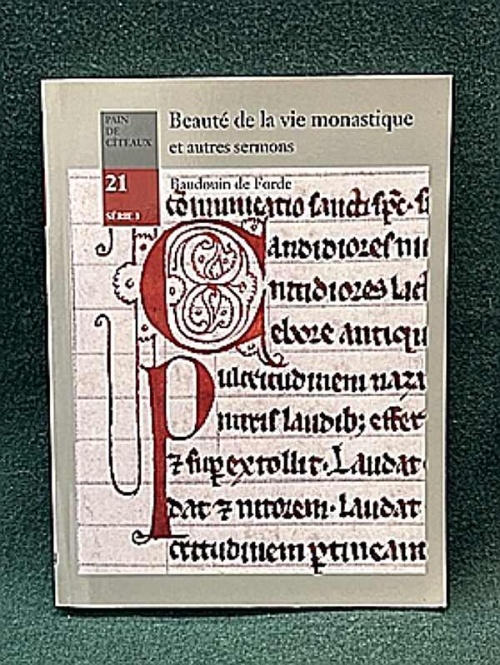 PAIN
DE
CÎTEAUX
21
SÉRIE 3
Beauté de la vie monastique
et autres sermons
Baudouin de Forde
cōmunicatio sancti sp̄c· s
Candidiores ni
ntidiores lact
ebore antiqu
Pulcritudinem naza
puris laudib; effet
⁊ suꝑextollit· Laudat
dat ⁊ nitorem· Laudat
ꝑtineant